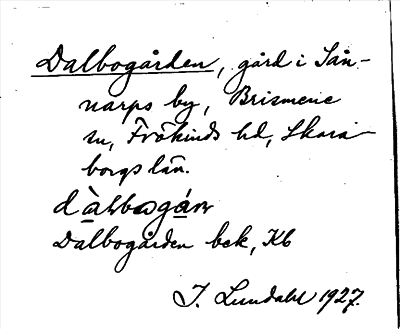 Dalbogården, gård i Sån-
narps by, Brismene
sn, Frökinds hd, Skara-
borgs län.
Dalbogården bek, Kb
J. Lundahl 1927.